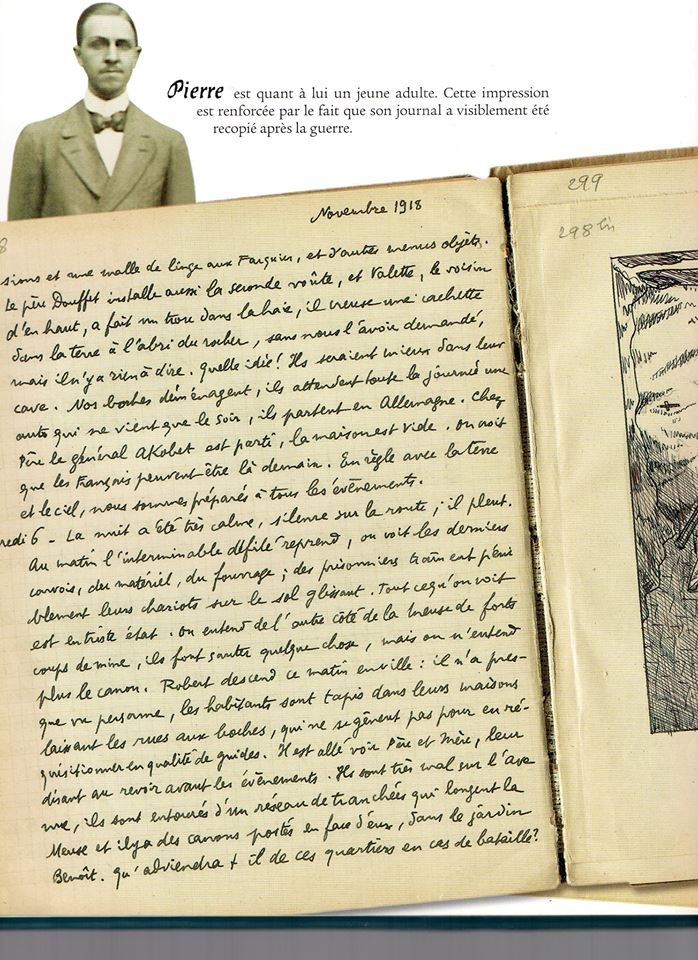 Pierre est quant à lui un jeune adulte. Cette impression
est renforcée par le fait que son journal a visiblement été
recopié après la guerre.
Novembre 1918
8
sions et une malle de linge aux Farguin, et d'autres menus objets.
Le père Douffet installe aussi la seconde voûte, et Valette, le voisin
d'en haut, a fait un trou dans la haie, il creuse une cachette
dans la terre à l'abri du rocher, sans nous l'avoir demandé,
mais il n'y a rien à dire. Quelle idée! Ils seraient mieux dans leur
cave. Nos boches déménagent, ils attendent toute la journée une
auto qui ne vient que le soir, ils partent en Allemagne. Chez
Père le général Akobet est parti, la maison est vide. On croit
que les Français peuvent être là demain. En règle avec la terre
et le ciel, nous sommes préparés à tous les évènements.
redi 6 - La nuit a été très calme, silence sur la route ; il pleut.
Au matin l'interminable défilé reprend, on voit les derniers
convois, du matériel, du fourrage ; des prisonniers trainent péni
blement leurs chariots sur le sol glissant. Tout ce qu'on voit
est en triste état. On entend de l'autre côté de la Meuse de forts
coups de mine, ils font sauter quelque chose, mais on n'entend
plus le canon. Robert descend ce matin en ville : il n'a pres-
que vu personne, les habitants sont tapis dans leurs maisons
laissant les rues aux boches, qui ne se gênent pas pour en ré-
quisitionner en qualité de guides. Il est allé voir Père et Mère, leur
disant au revoir avant les évènements. Ils sont très mal sur l'ave
nue, ils sont entourés d'un réseau de tranchées qui longent la
Meuse et il y a des canons postés en face d'eux, dans le jardin
Benoît. Qu'adviendra t il de ces quartiers en cas de bataille?
299
298 bis